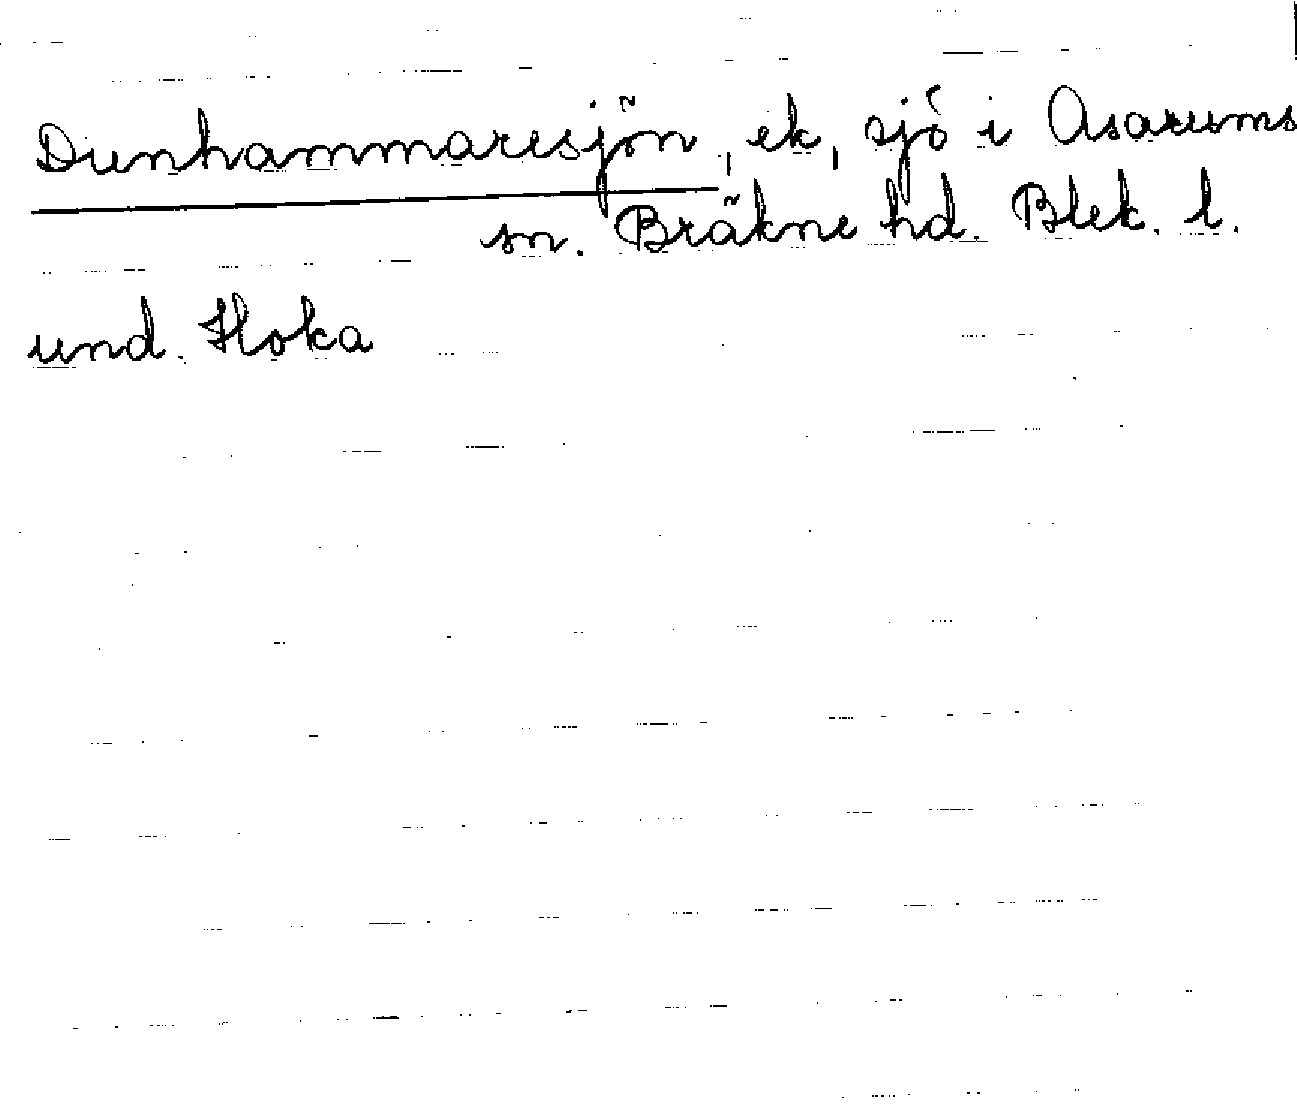 Dunhammaresjön, ek, sjö i Asarums
sn. Bräkne hd. Blek. l.
und. Hoka